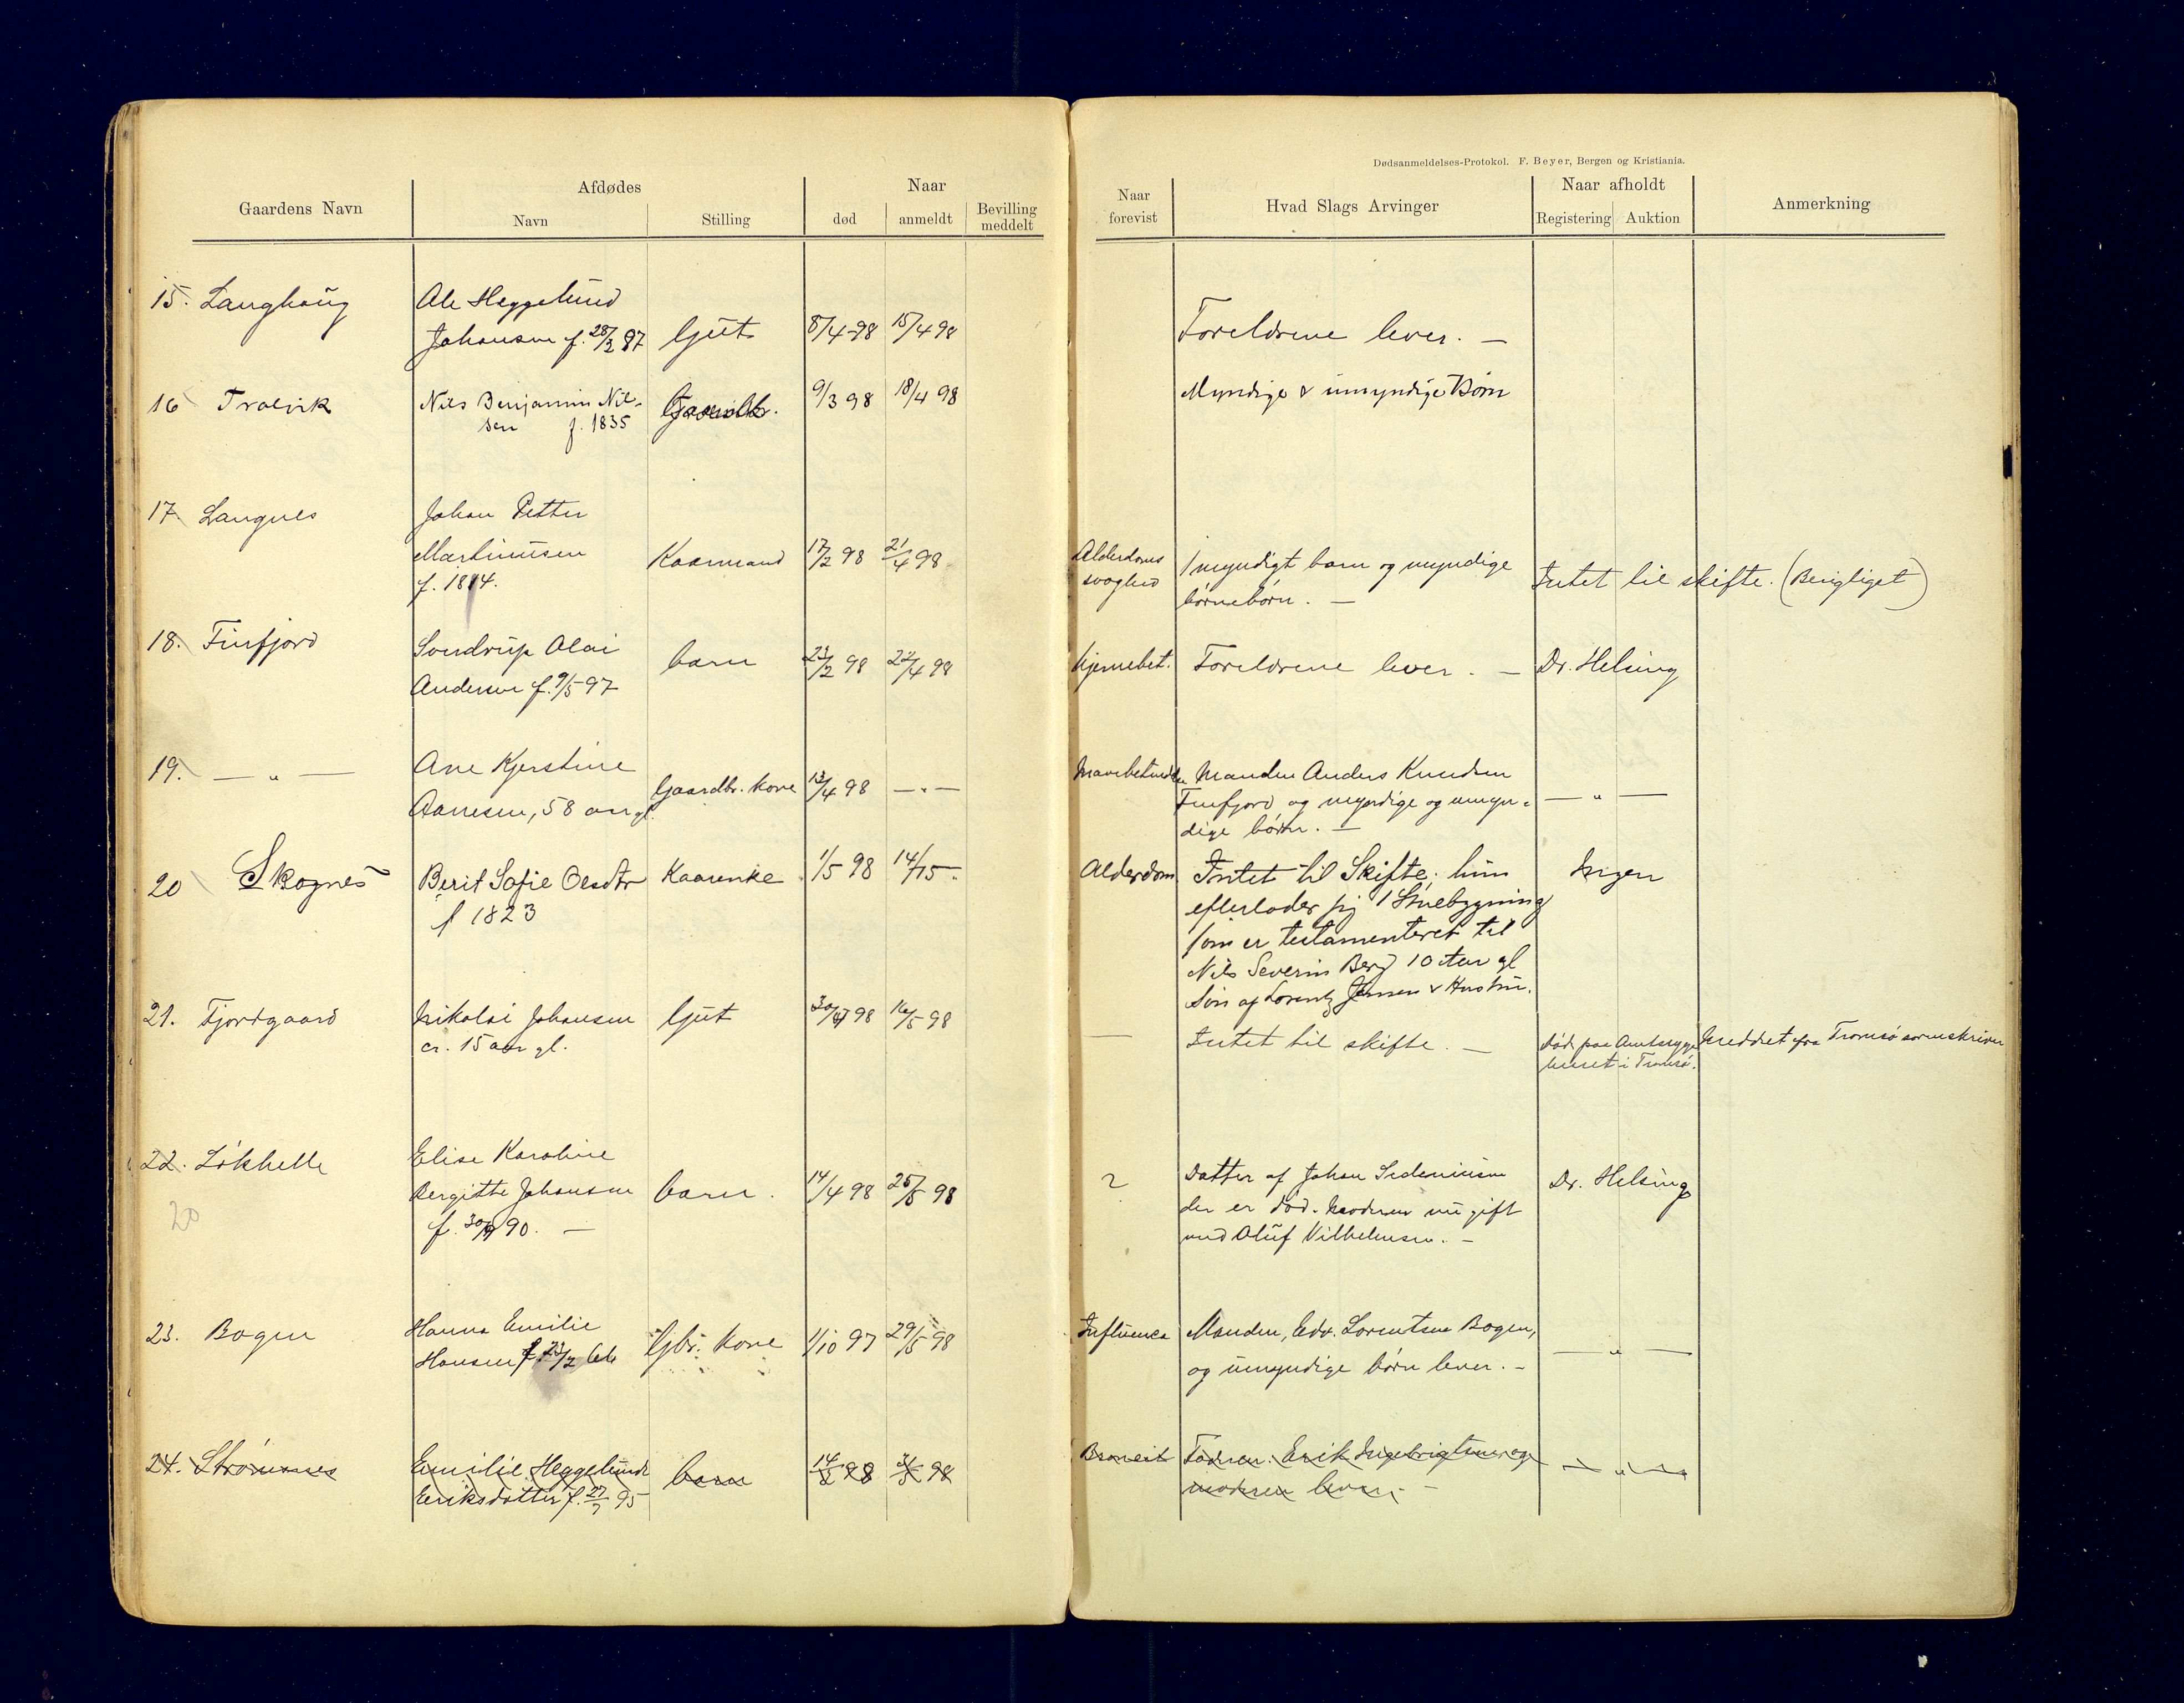 Dødsanmeldelses-Protokol. F. Beyer, Bergen og Kristiania.
Gaardens Navn
Afdødes
Navn
Stilling
Naar
død
anmeldt
Bevilling
meddelt
Naar
forevist
Hvad Slags Arvinger
Naar afholdt
Registering
Auktion
Anmerkning
15. Langhaug
Ole Heggelund
Johansen f. 28/2 97
Gut
8/4 98
15/4 98
Foreldrene lever. —
16 Trolvik
Nils Benjamin Nil-
sen f. 1835
Gaardbr.
9/3 98
18/4 98
Myndige & umyndige Børn
17. Langnes
Johan Petter
Martinusen
f. 1814.
Kaarmand
17/2 98
21/4 98
Alderdoms
svaghed
1 myndigt barn og myndige
børnebørn. —
Intet til skifte. (Berigtiget)
18. Finfjord
Sendrup Olai
Andersen f. 9/5 97
barn
23/2 98
22/4 98
hjernebet.
Foreldrene lever. —
Dr. Helsing
19. — " —
Ane Kjerstine
Aanesen, 58 aar gl.
Gaardbr. kone
13/4 98
— " —
Manden Anders Knudsen
Finfjord og myndige og umyn-
dige børn. —
— " —
20 Skognes
Berit Sofie Olsdtr
f 1823
Kaarenke
1/5 98
14/5 -
Alderdom
Intet til Skifte; hun
efterlader sig 1 Stuebygning
som er testamenteret til
Nils Severin Berg 10 Aar gl
Søn af Lorentz Jensen & Hustru.
Ingen
21. Fjordgaard
Nikolai Johansen
cr. 15 aar gl.
Gut
30/4 98
16/5 98
—
Intet til skifte. —
død paa Amtssyge
huset i Tromsø.
Meddelt fra Tromsø sorenskriver
22. Løkhelle
20
Elise Karoline
Bergitte Johansen
f. 30/9 90. —
barn.
14/4 98
25/5 98
?
Datter af Johan Sedeniusen
der er død. Moderen nu gift
med Oluf Vilhelmsen. —
Dr. Helsing
23. Bogen
Hanna Emilie
Hansen f. 23/2
Gbr. kone
1/10 97
29/5 98
Influenca
Manden, Edv. Lorentsen Bogen,
og umyndige børn lever. -
— " —
24. Strømsnes
Emilie Heggelund
Eriksdatter f. 27/7 95
barn
14/2 98
98
Faderen: Erik Ingebrigtsen og
moderen lever. -
— " —